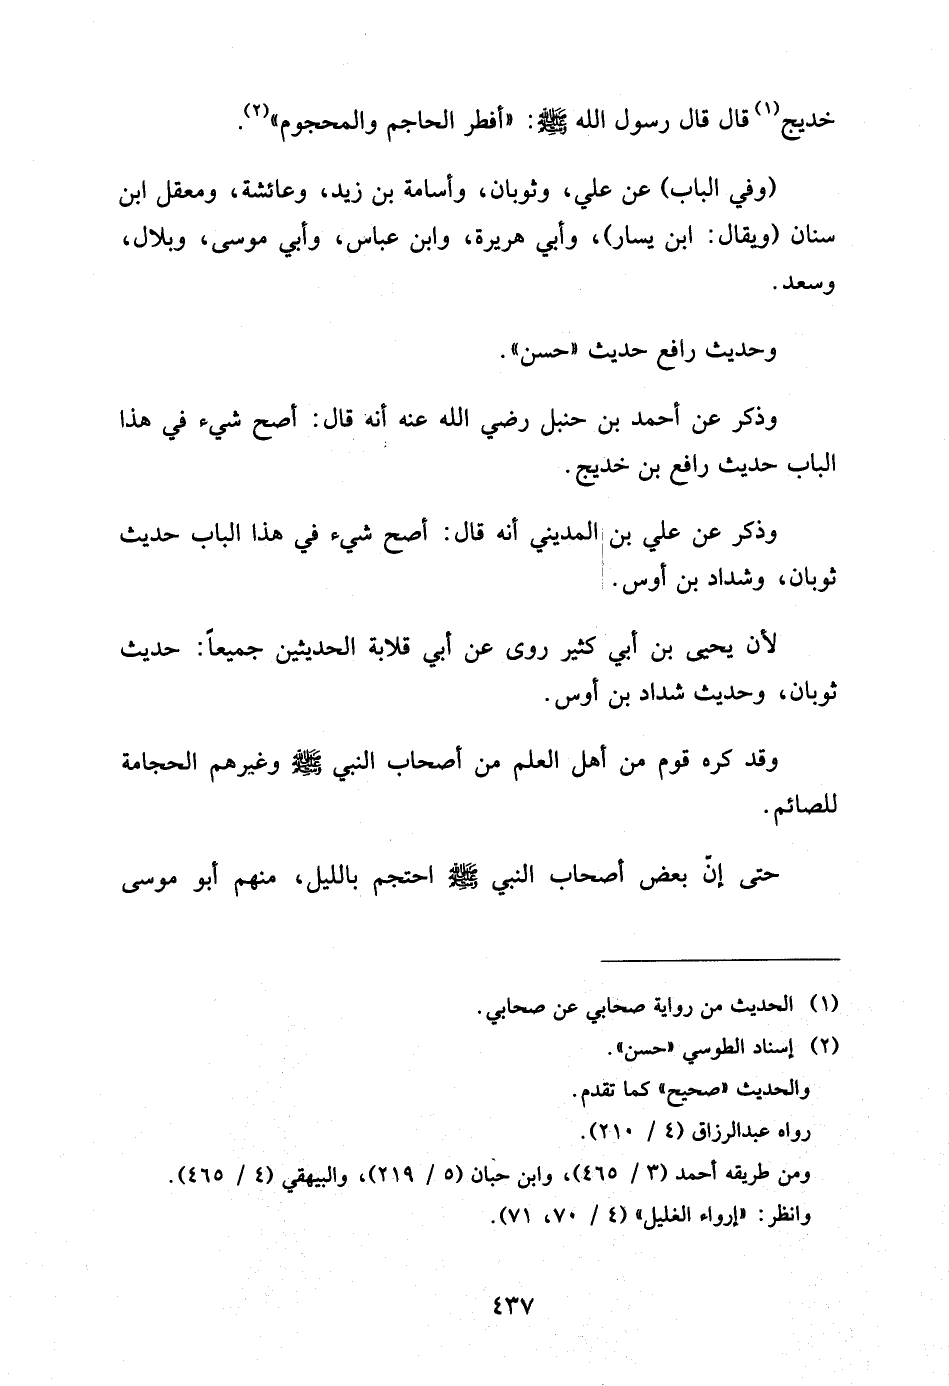 خديج(١) قال قال رسول الله ﷺ: «أفطر الحاجم والمحجوم»(٢).
(وفي الباب) عن علي، وثوبان، وأسامة بن زيد، وعائشة، ومعقل ابن
سنان (ويقال: ابن يسار)، وأبي هريرة، وابن عباس، وأبي موسى، وبلال،
وسعد.
وحديث رافع حديث «حسن».
وذكر عن أحمد بن حنبل رضي الله عنه أنه قال: أصح شيء في هذا
الباب حديث رافع بن خديج.
وذكر عن علي بن المديني أنه قال: أصح شيء في هذا الباب حديث
ثوبان، وشداد بن أوس.
لأن يحيى بن أبي كثير روى عن أبي قلابة الحديثين جميعاً: حديث
ثوبان، وحديث شداد بن أوس.
وقد كره قوم من أهل العلم من أصحاب النبي ﷺ وغيرهم الحجامة
للصائم.
حتى إنّ بعض أصحاب النبي ﷺ احتجم بالليل، منهم أبو موسى
(١) الحديث من رواية صحابي عن صحابي.
(٢) إسناد الطوسي «حسن».
والحديث «صحيح» كما تقدم.
رواه عبدالرزاق (٤ / ٢١٠).
ومن طريقه أحمد (٣ / ٤٦٥)، وابن حبان (٥ / ٢١٩)، والبيهقي (٤ / ٤٦٥).
وانظر: «إرواء الغليل» (٤ / ٧٠، ٧١).
٤٣٧